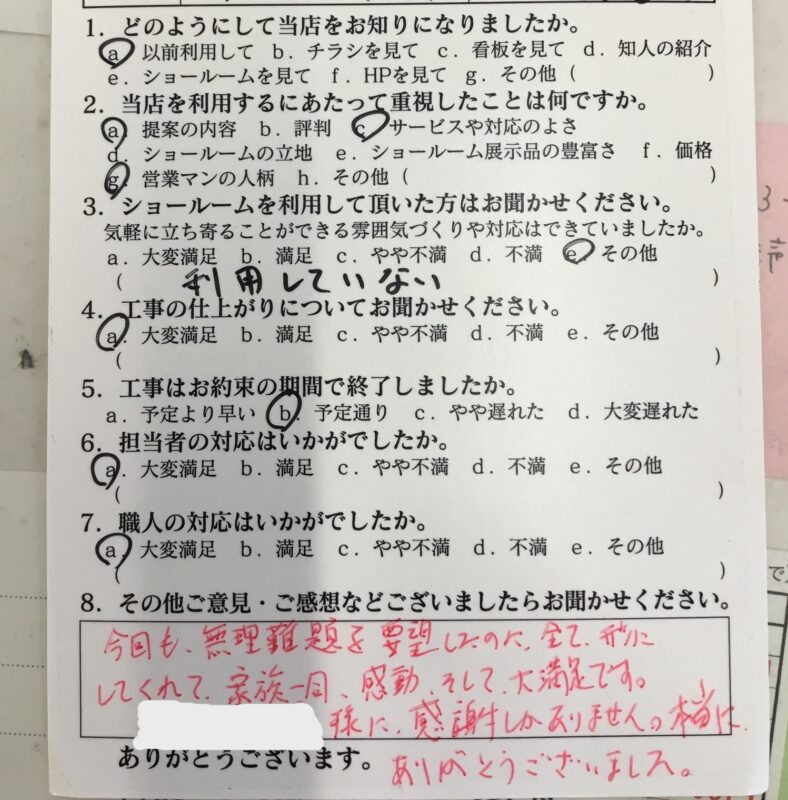 1．どのようにして当店をお知りになりましたか。
a．以前利用して b．チラシを見て c．看板を見て d．知人の紹介
e．ショールームを見て f．HPを見て g．その他（ ）
2．当店を利用するにあたって重視したことは何ですか。
a．提案の内容 b．評判 c．サービスや対応のよさ
d．ショールームの立地 e．ショールーム展示品の豊富さ f．価格
g．営業マンの人柄 h．その他（ ）
3．ショールームを利用して頂いた方はお聞かせください。
気軽に立ち寄ることができる雰囲気づくりや対応はできていましたか。
a．大変満足 b．満足 c．やや不満 d．不満 e．その他
（ 利用していない ）
4．工事の仕上がりについてお聞かせください。
a．大変満足 b．満足 c．やや不満 d．不満 e．その他
（ ）
5．工事はお約束の期間で終了しましたか。
a．予定より早い b．予定通り c．やや遅れた d．大変遅れた
6．担当者の対応はいかがでしたか。
a．大変満足 b．満足 c．やや不満 d．不満 e．その他
（ ）
7．職人の対応はいかがでしたか。
a．大変満足 b．満足 c．やや不満 d．不満 e．その他
（ ）
8．その他ご意見・ご感想などございましたらお聞かせください。
今回も、無理難題を要望したのに、全て、形に
してくれて、家族一同、感動、そして、大満足です。
様に、感謝しかありません。本当に
ありがとうございます。 ありがとうございました。